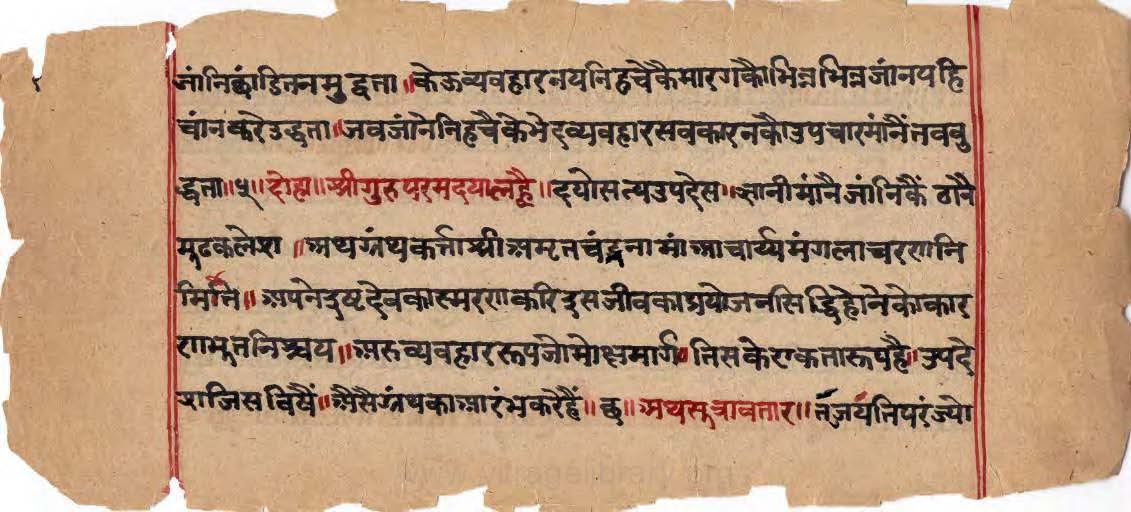 जांनि छांडितन मुद्धता ॥ केऊ व्यवहार नय निहचे कै मारग कौ भिन्न भिन्न जांन पहि
चांन करै उद्धता ॥ जब जांनै निहचै के भेद व्यवहार सब कारन कौ उपचार मांनै तब बु
द्धता ॥ ५ ॥ दोहा ॥ श्री गुरु परम दयाल है ॥ दयो सत्य उपदेस ॥ ज्ञानी मांनै जांनि कैं ठांनै
मूढ कलेश ॥ अथ ग्रंथकर्ता श्री अमृतचंद्र नामां आचार्य्य मंगलाचरण नि
मित्ति ॥ अपने इष्टदेव का स्मरण करि इस जीव का प्रयोजन सिद्धि होने को कार
णभूत निश्चय ॥ अरु व्यवहार रूप जो मोक्षमार्ग ॥ तिसके एकता रूप है ॥ उपदे
श जिस विषैं ॥ अैसै ग्रंथ का आरंभ करे हैं ॥ छ ॥ अथ सूत्रावतार ॥ तज्जयति परंज्यो
www.vitragelibrary.org